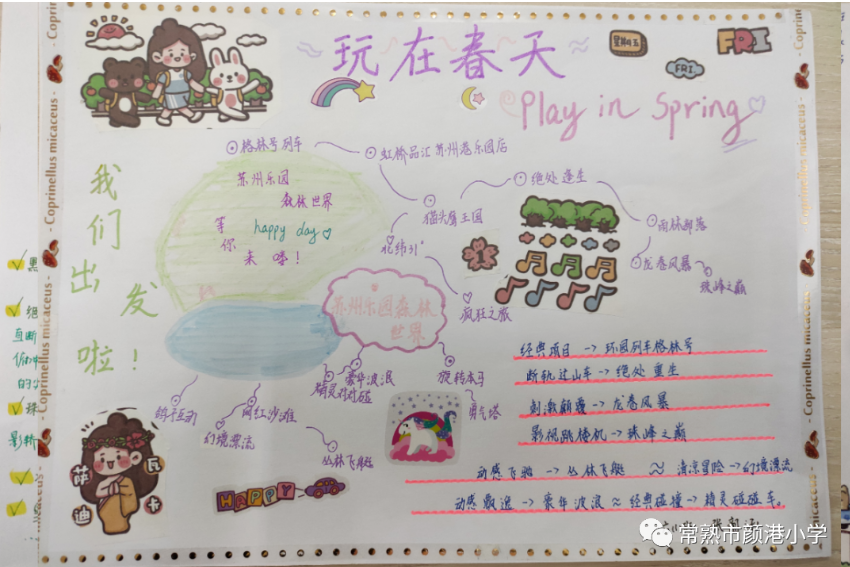 玩在春天
Play in Spring
星期五
FRI
FRI
我们出发啦！
格林号列车
虹桥品汇苏州港乐园店
苏州乐园
森林世界
happy day
等你来喔！
猫头鹰王国
绝处逢生
雨林部落
龙卷风暴
珠峰之巅
北纬31°
疯狂之旅
苏州乐园森林
世界
豪华波浪
精灵对对碰
旋转木马
勇气塔
网红沙滩
幻境漂流
丛林飞艇
经典项目→环园列车格林号
断轨过山车→绝处重生
刺激颠覆→龙卷风暴
影视跳楼机→珠峰之巅
动感飞艇→丛林飞艇 ≈ 清凉冒险→幻境漂流
动感飘逸→豪华波浪 ≈ 经典碰撞→精灵碰碰车。
HAPPY
萨瓦迪卡
Coprinellus micaceus
Coprinellus micaceus
Coprinellus micaceus
Coprinellus micaceus
常熟市颜港小学